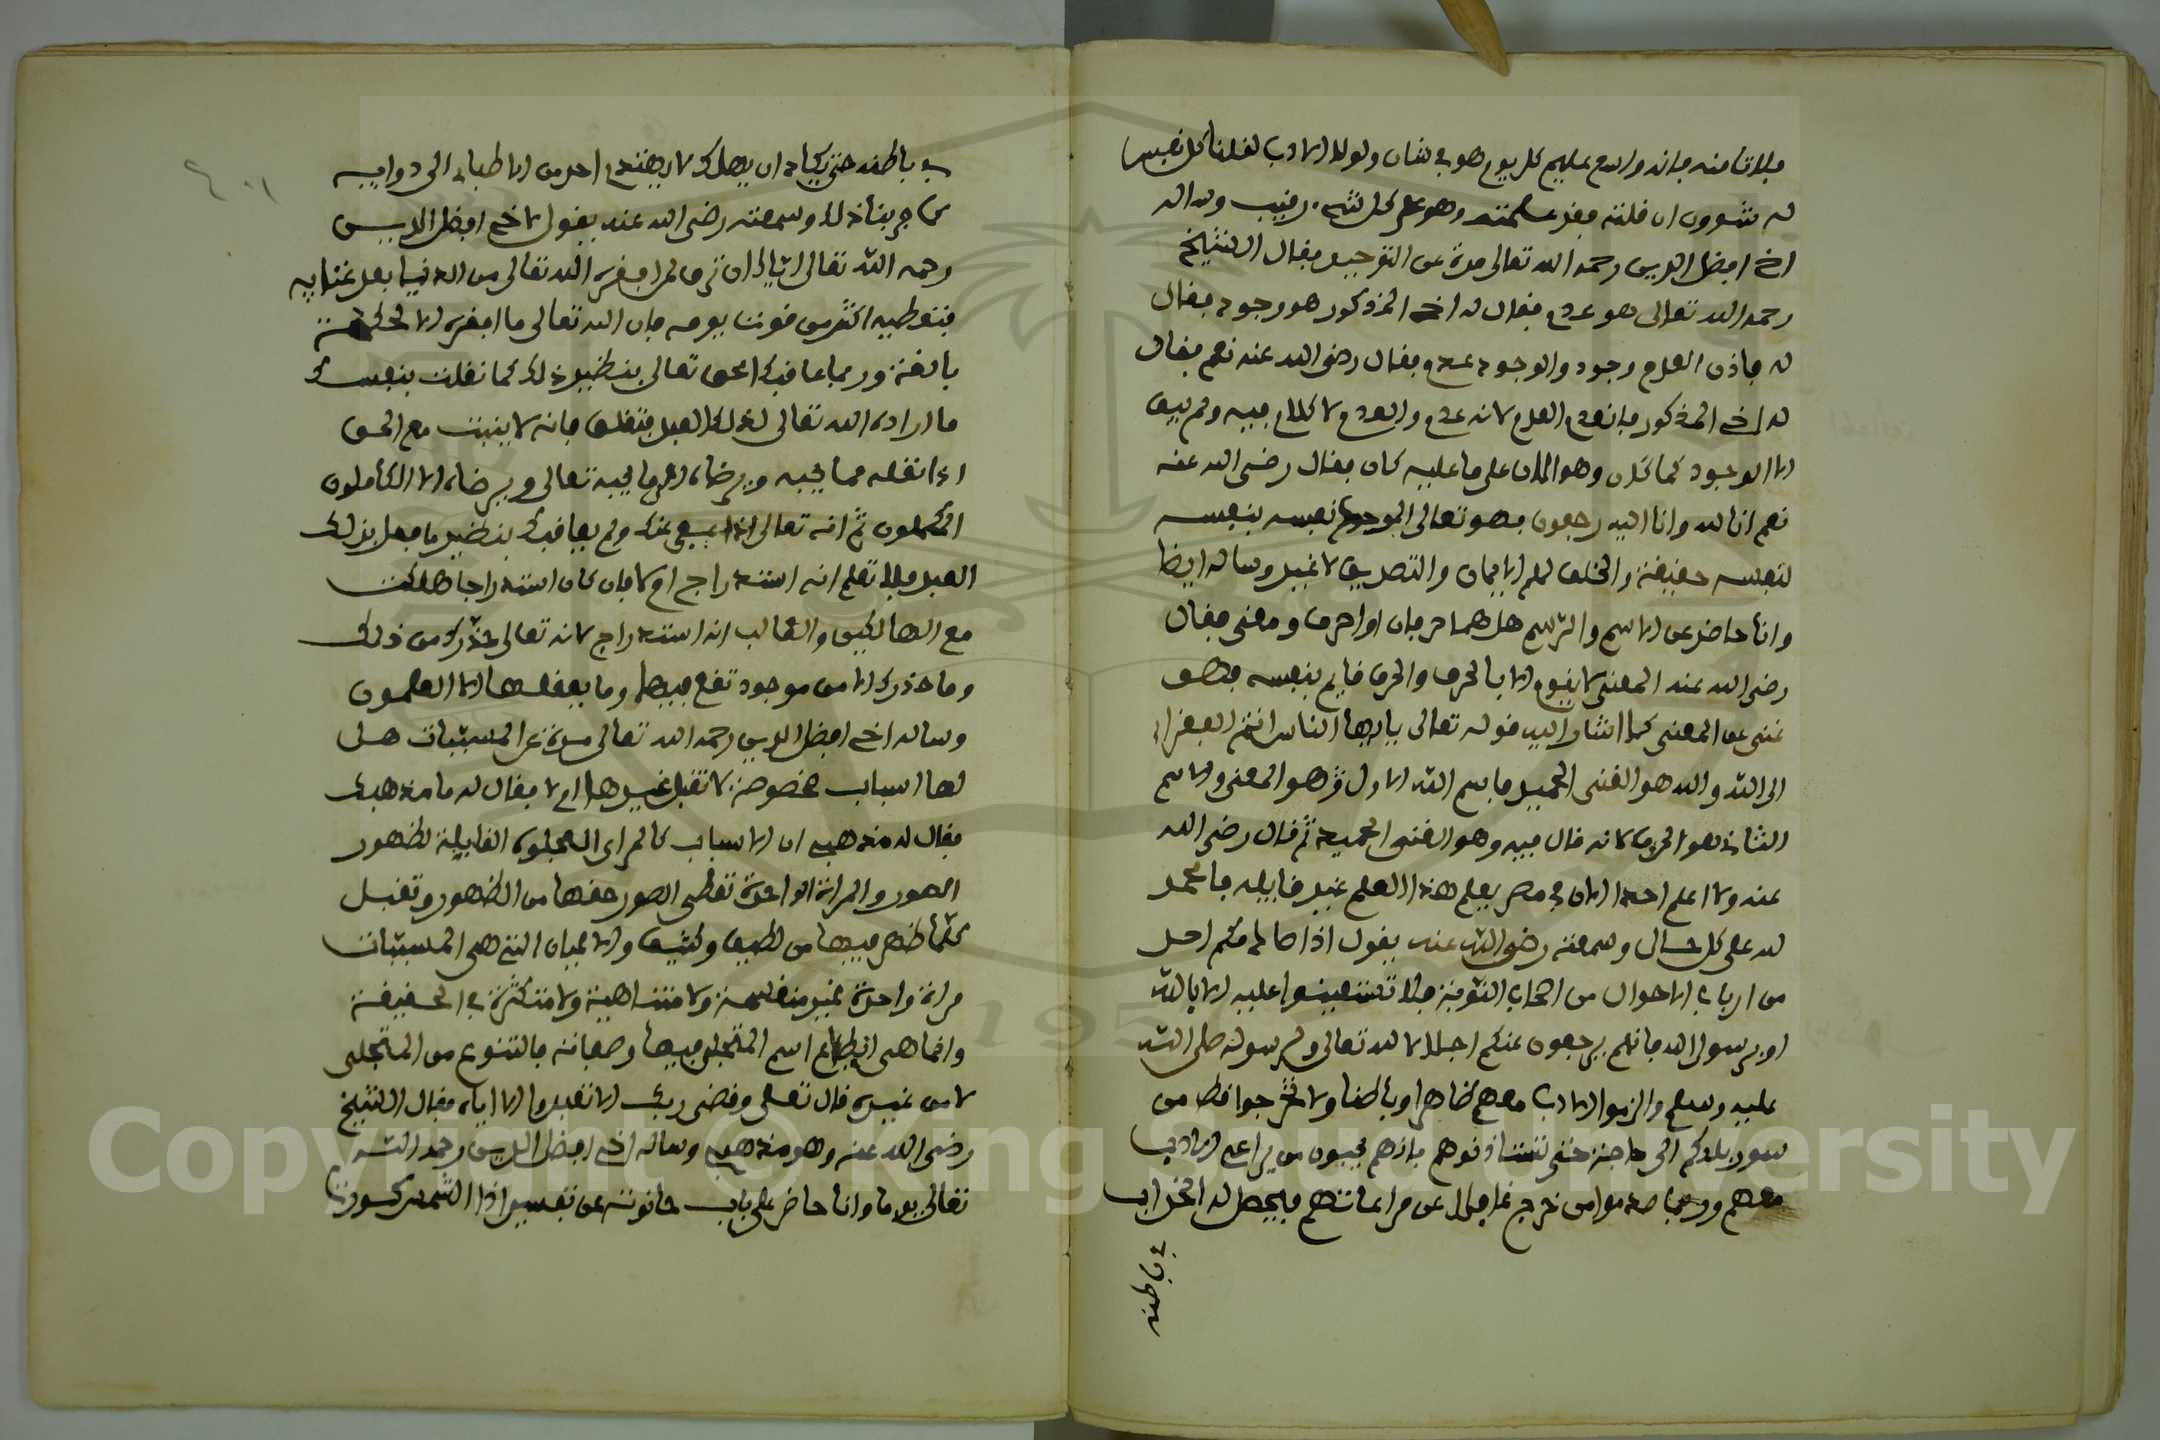 فلا تامنه فانه واسع عليم كل يوم هو في شان ولولا الادب لقلنا كل نفس
له شوون ان قلته فقد علمته وهو على كل شيء رقيب وساله
اخي افضل الدين رحمه الله تعالى مرة عن التوحيد فقال الشيخ
رحمه الله تعالى هو عدم فقال له اخي المذكور هو وجود فقال
له فاذن العدم وجود والوجود عدم فقال رضي الله عنه نعم فقال
له اخي المذكور فانعدم العدم لانه عدم والعدم لا كلام فيه ولم يبق
الا الوجود كما كان وهو الان على ما عليه كان فقال رضي الله عنه
نعم انا لله وانا اليه راجعون فهو تعالى الموحد نفسه بنفسه
لنفسه حقيقة والخلق لهم الايمان والتصديق لا غير وساله ايضا
وانا حاضر عن الاسم والرسم هل هما حرفان او احرف ومعنى فقال
رضي الله عنه المعنى لا يقوم الا بالحرف والحرف قايم بنفسه فهو
غني عن المعنى كما اشار اليه قوله تعالى يا ايها الناس انتم الفقرا
الى الله والله هو الغني الحميد فاسم الله الاول هو المعنى والاسم
الثاني هو الحرف لانه قال فيه وهو الغني الحميد ثم قال رضي الله
عنه ولا اعلم احدا الان في مصر يعلم هذا العلم غير قايله فالحمد
لله على كل حال وسمعته رضي الله عنه يقول اذا صادمكم احد
من ارباب الاحوال من اصحاب النوبة فلا تستعينوا عليه الا بالله
او برسول الله فانهم يرجعون عنكم اجلالا لله تعالى ولرسوله صلى الله
عليه وسلم والزموا الادب معهم ظاهرا وباطنا ولا تخرجوا قط من
سور بلدكم الى حاجة حتى تستاذنوهم فانهم يحبون من يراعي الادب
معهم وربما صدموا من خرج غافلا عن مراعاتهم فيحصل له الخراب
في باطنه
في باطنه حتى يكاد ان يهلك لا يهتدي احد من الاطباء الى دوايه
كما جربنا ذلك وسمعته رضي الله عنه يقول لاخي افضل الدين
رحمه الله تعالى اياك ان ترى لمن افقره الله تعالى من الدنيا بعد غنايه
فتعطيه اكثر من قوت يومه فان الله تعالى ما افقره الا لحكمة
بالغة وربما عاقبك الحق تعالى بنظير ذلك كما نقلت بنفسك
ما اراده الله تعالى لذلك العبد فتقلق فانه لا يثبت مع الحق
اذا نقله مما يحبه ويرضاه الى ما يحبه تعالى ويرضاه الا الكاملون
المكملون ثم انه تعالى اذا عفى عنك ولم يعاقبك بنظير ما فعل بذلك
العبد فلا تعلم انه استدراج ام لا فان كان استدراجا هلكت
مع الهالكين والغالب انه استدراج لانه تعالى حذرك من ذلك
وما حذرك الا من موجود تقع فيه وما يعقلها الا العلمون
وساله اخي افضل الدين رحمه الله تعالى مرة عن المسببات هل
لها اسباب مخصوصة لا تقبل غيرها ام لا فقال له ما مذهبك
فقال له مذهبي ان الاسباب كالمراى المجلوة القابلة لظهور
الصور والمراة الواحدة تعطي الصور حقها من الظهور وتقبل
كلما ظهر فيها من لطيف وكثيف والاعيان التي هي المسببات
مراة واحدة غير منقسمة ولا متناهية ولا متكثرة في الحقيقة
وانما هي انطباع اسم المتجلي فيها وصفاته فالتنوع من المتجلى
لا من غيره قال تعالى وقضى ربك الا تعبدوا الا اياه فقال الشيخ
رضي الله عنه وهو مذهبي وساله اخي افضل الدين رحمه الله
تعالى يوما وانا حاضر على باب حانوته عن تفسير اذا الشمس كورت